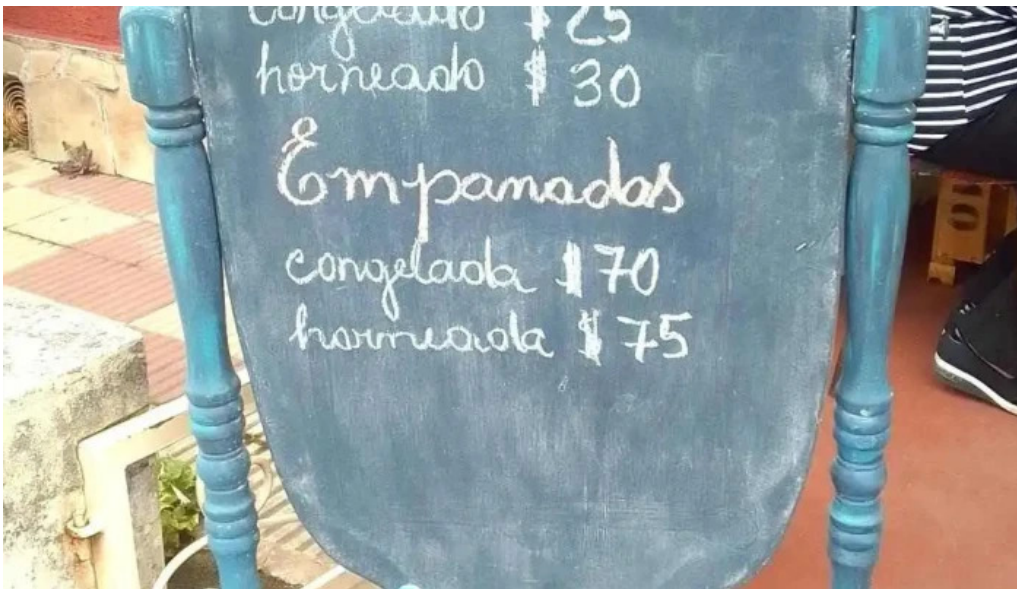 congelado $25
horneado $30
Empanadas
congelada $70
horneada $75